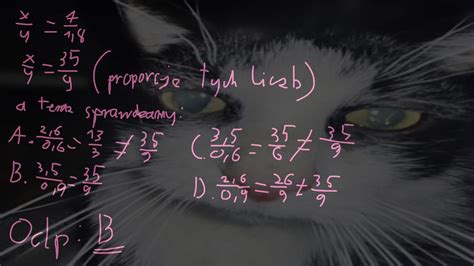 x/y = 7/1,8
x/y = 35/9 (proporcje tych liczb)
a teraz sprawdzamy:
A. 2,6/0,6 = 13/3 ≠ 35/9
B. 3,5/0,9 = 35/9
C. 3,5/0,6 = 35/6 ≠ 35/9
D. 2,6/0,9 = 26/9 ≠ 35/9
Odp: B